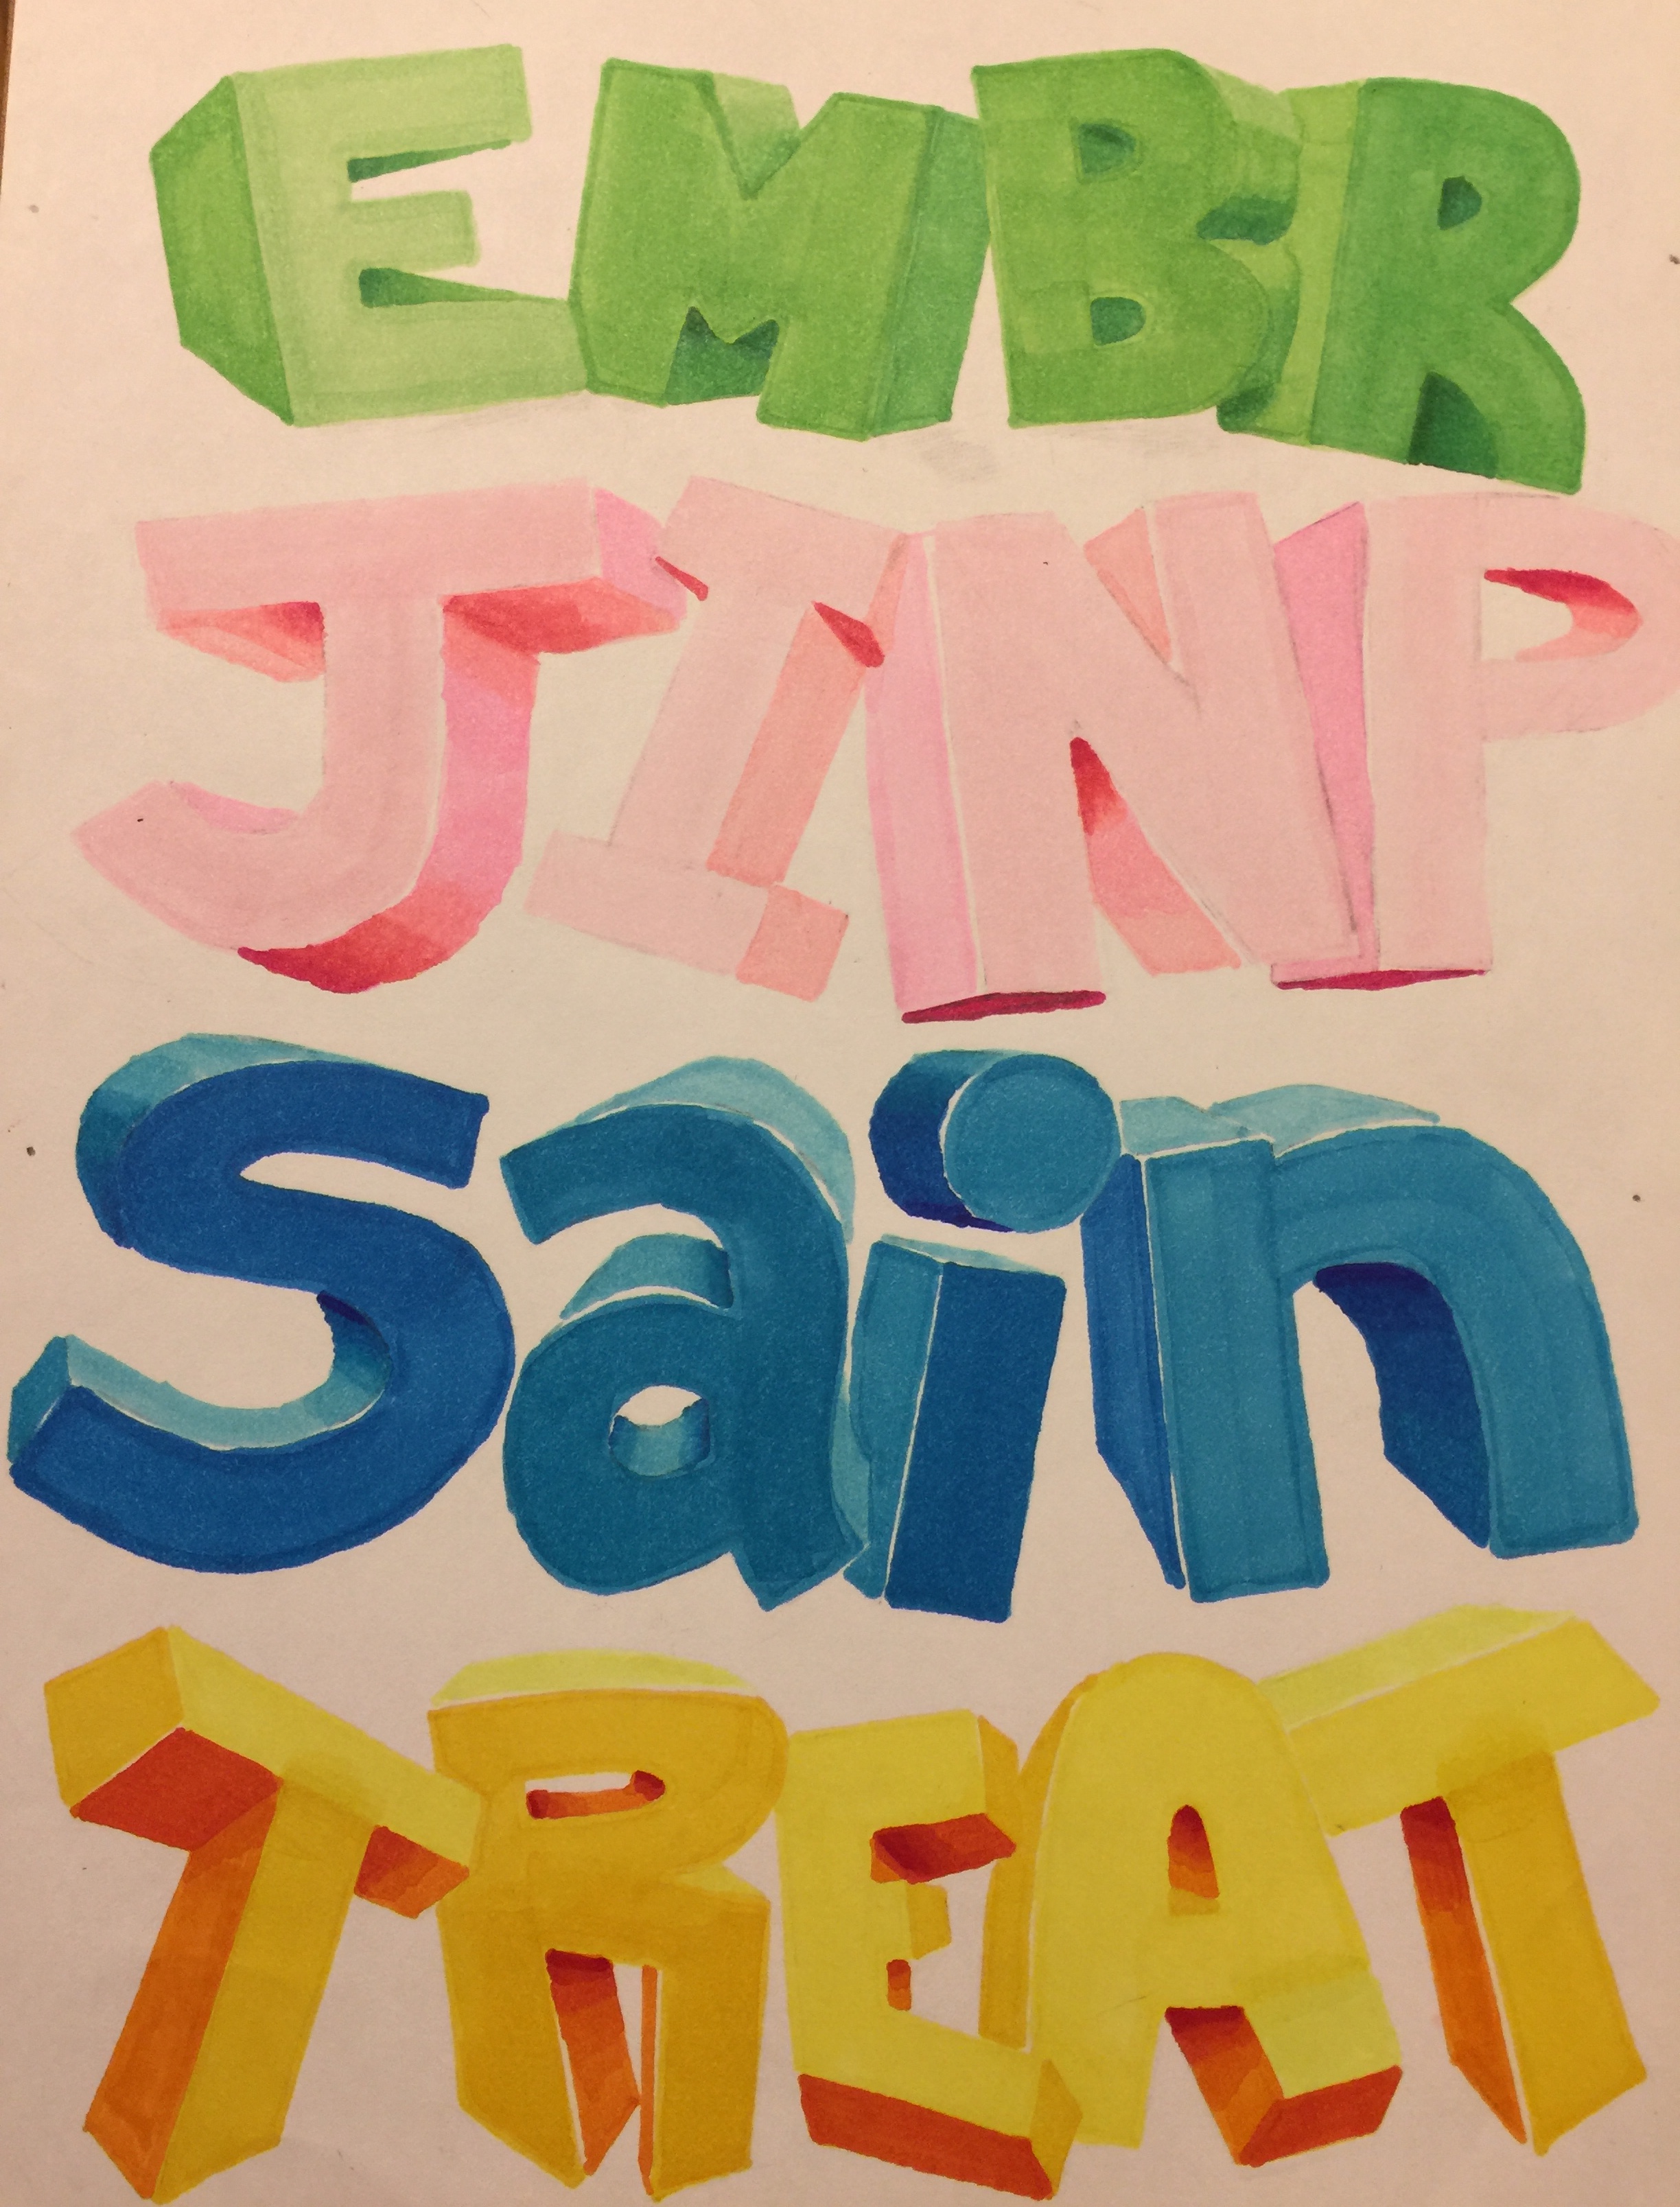 EMBR
JINP
Sain
TREAT